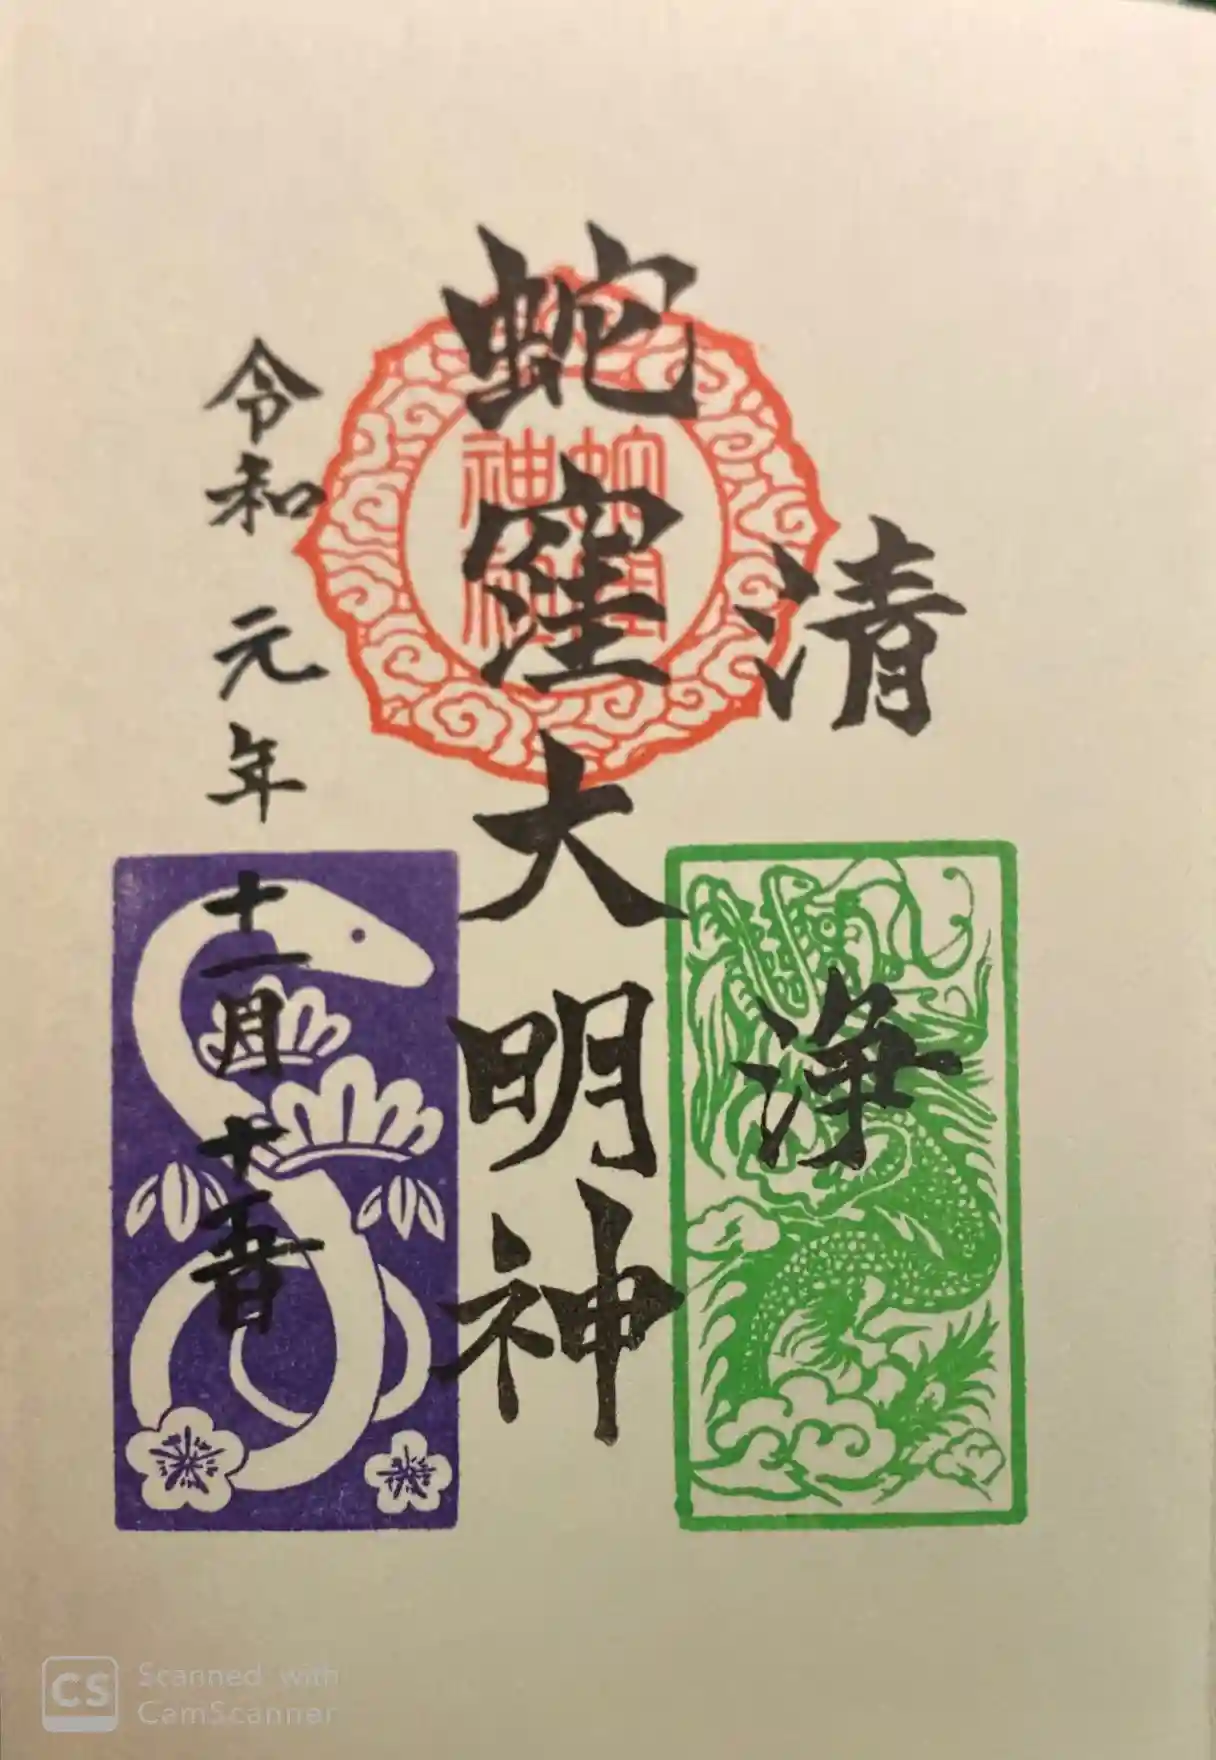 清浄
蛇窪大明神
蛇窪神社
令和元年十一月十二日
CS
Scanned with
CamScanner